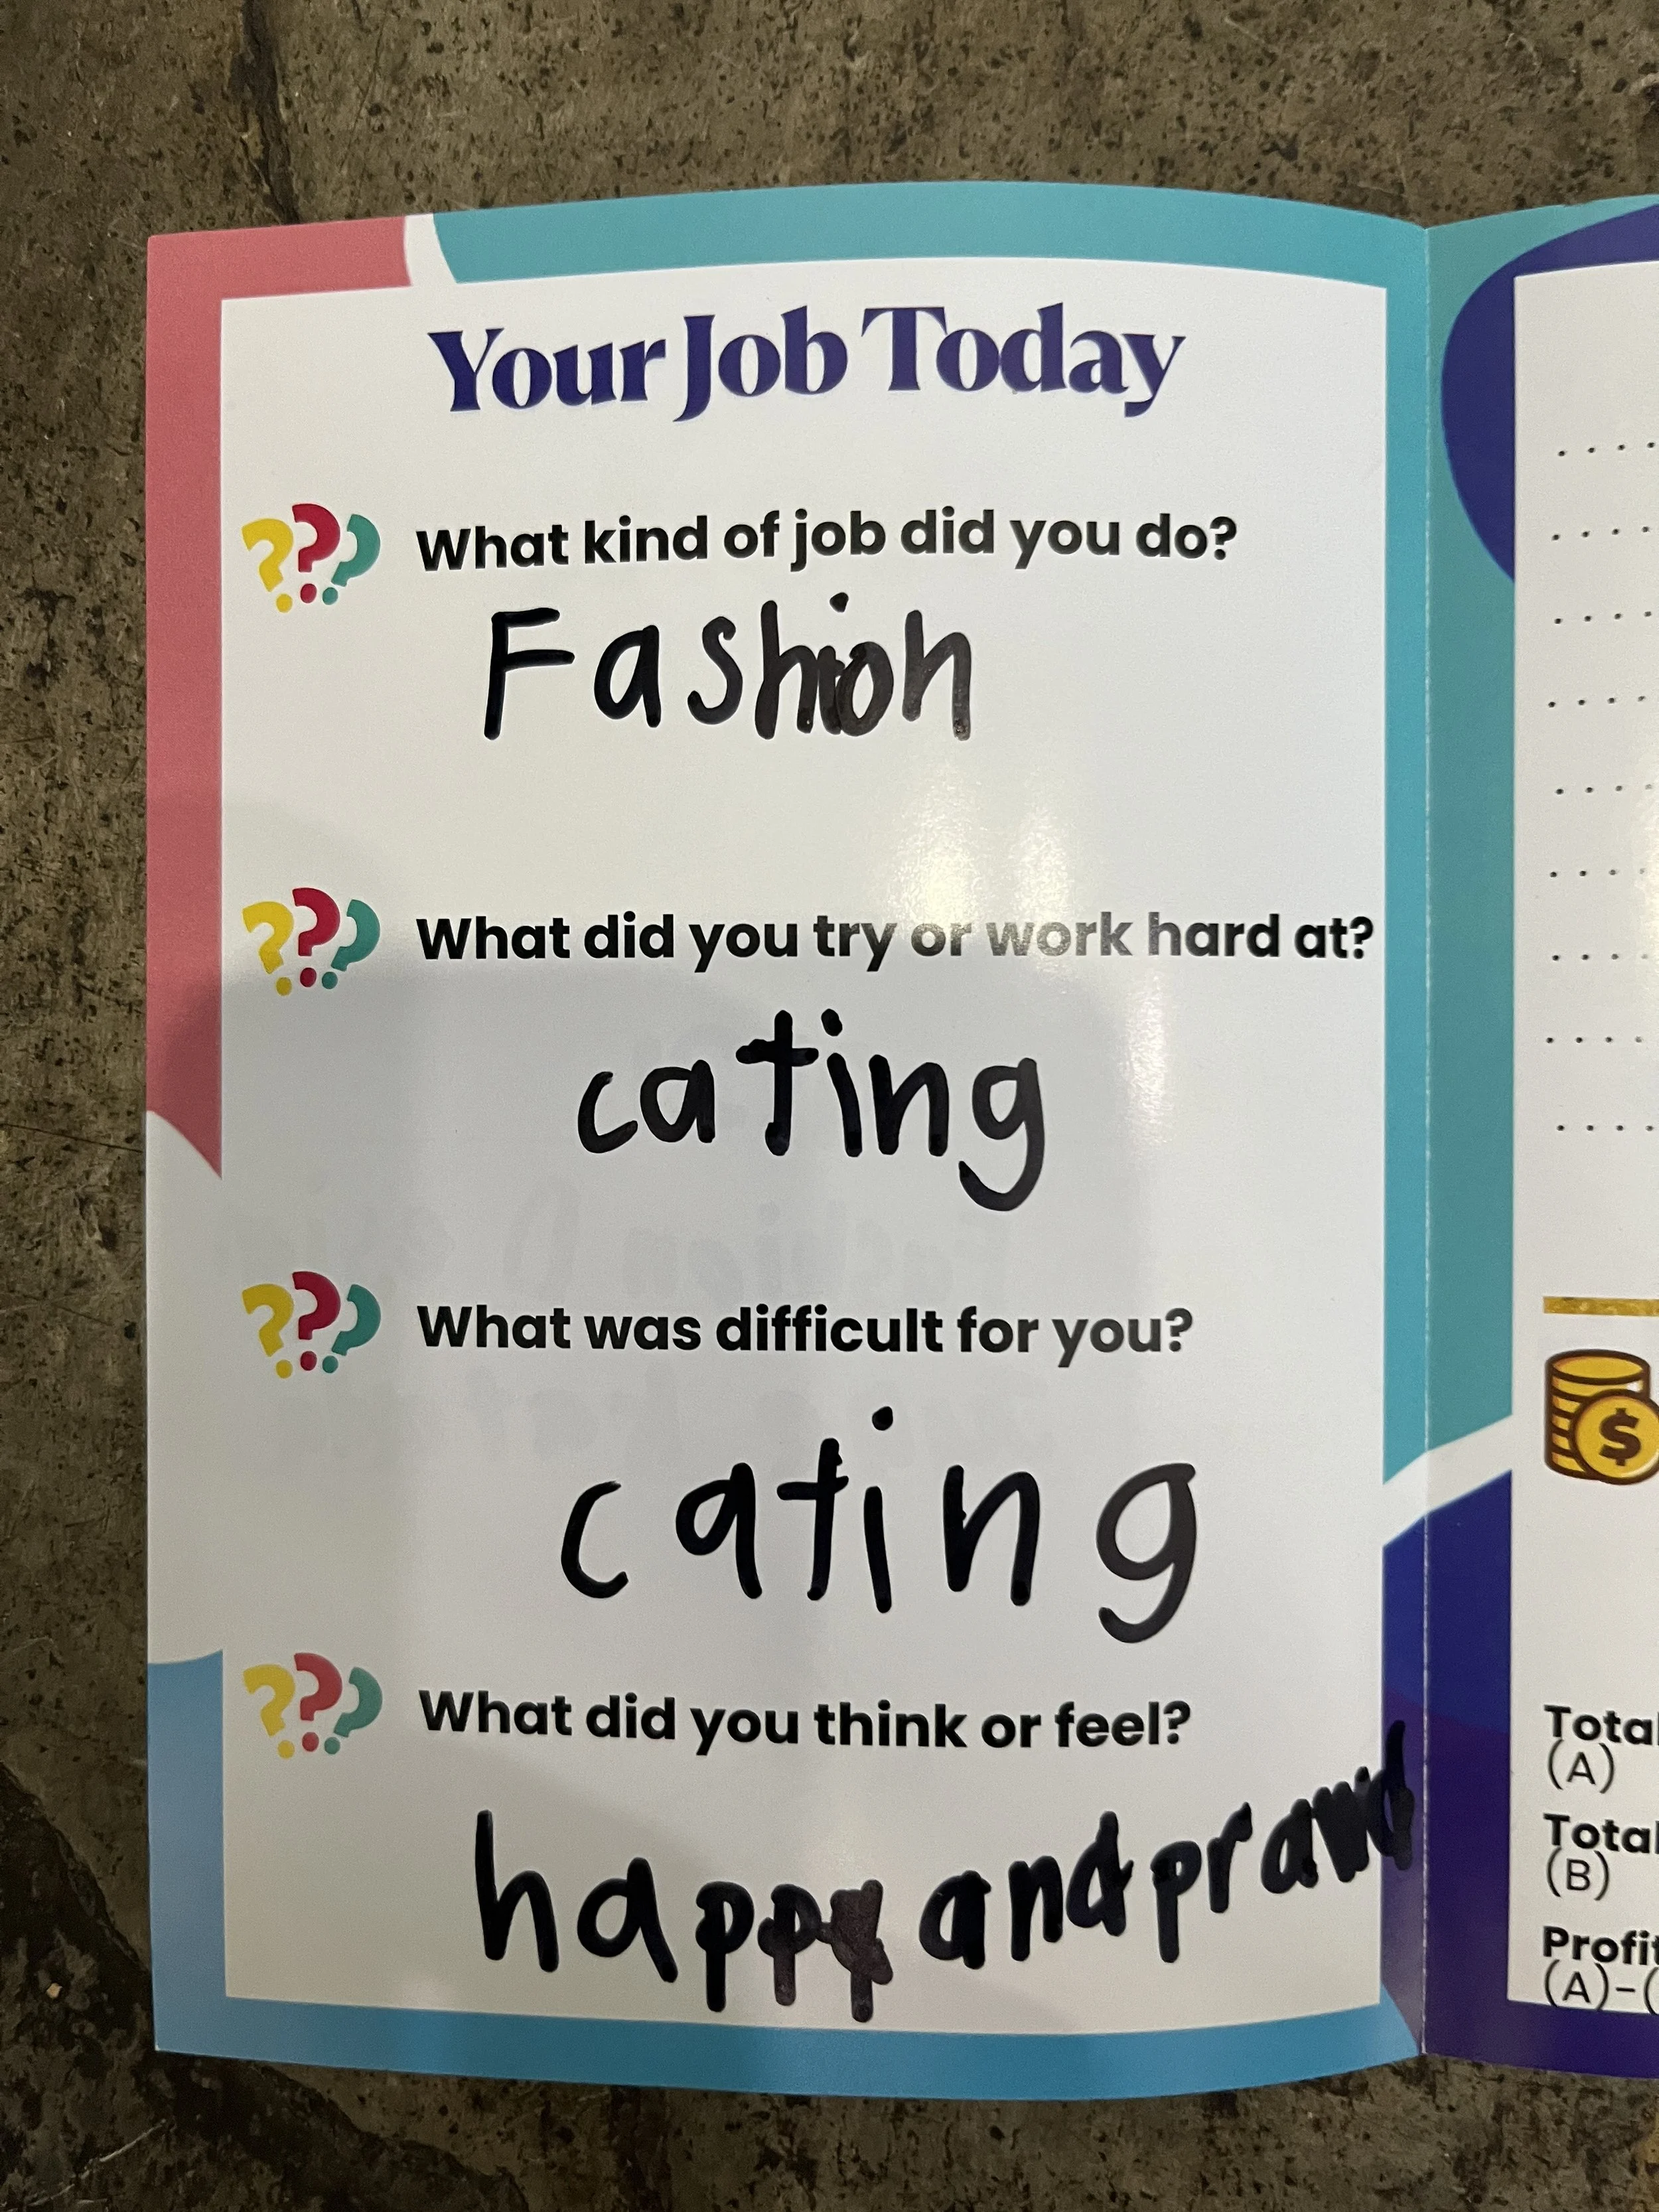 Your Job Today
What kind of job did you do?
Fashion
What did you try or work hard at?
cating
What was difficult for you?
cating
What did you think or feel?
happy and prawd
$
Total
(A)
Total
(B)
Profit
(A)-(